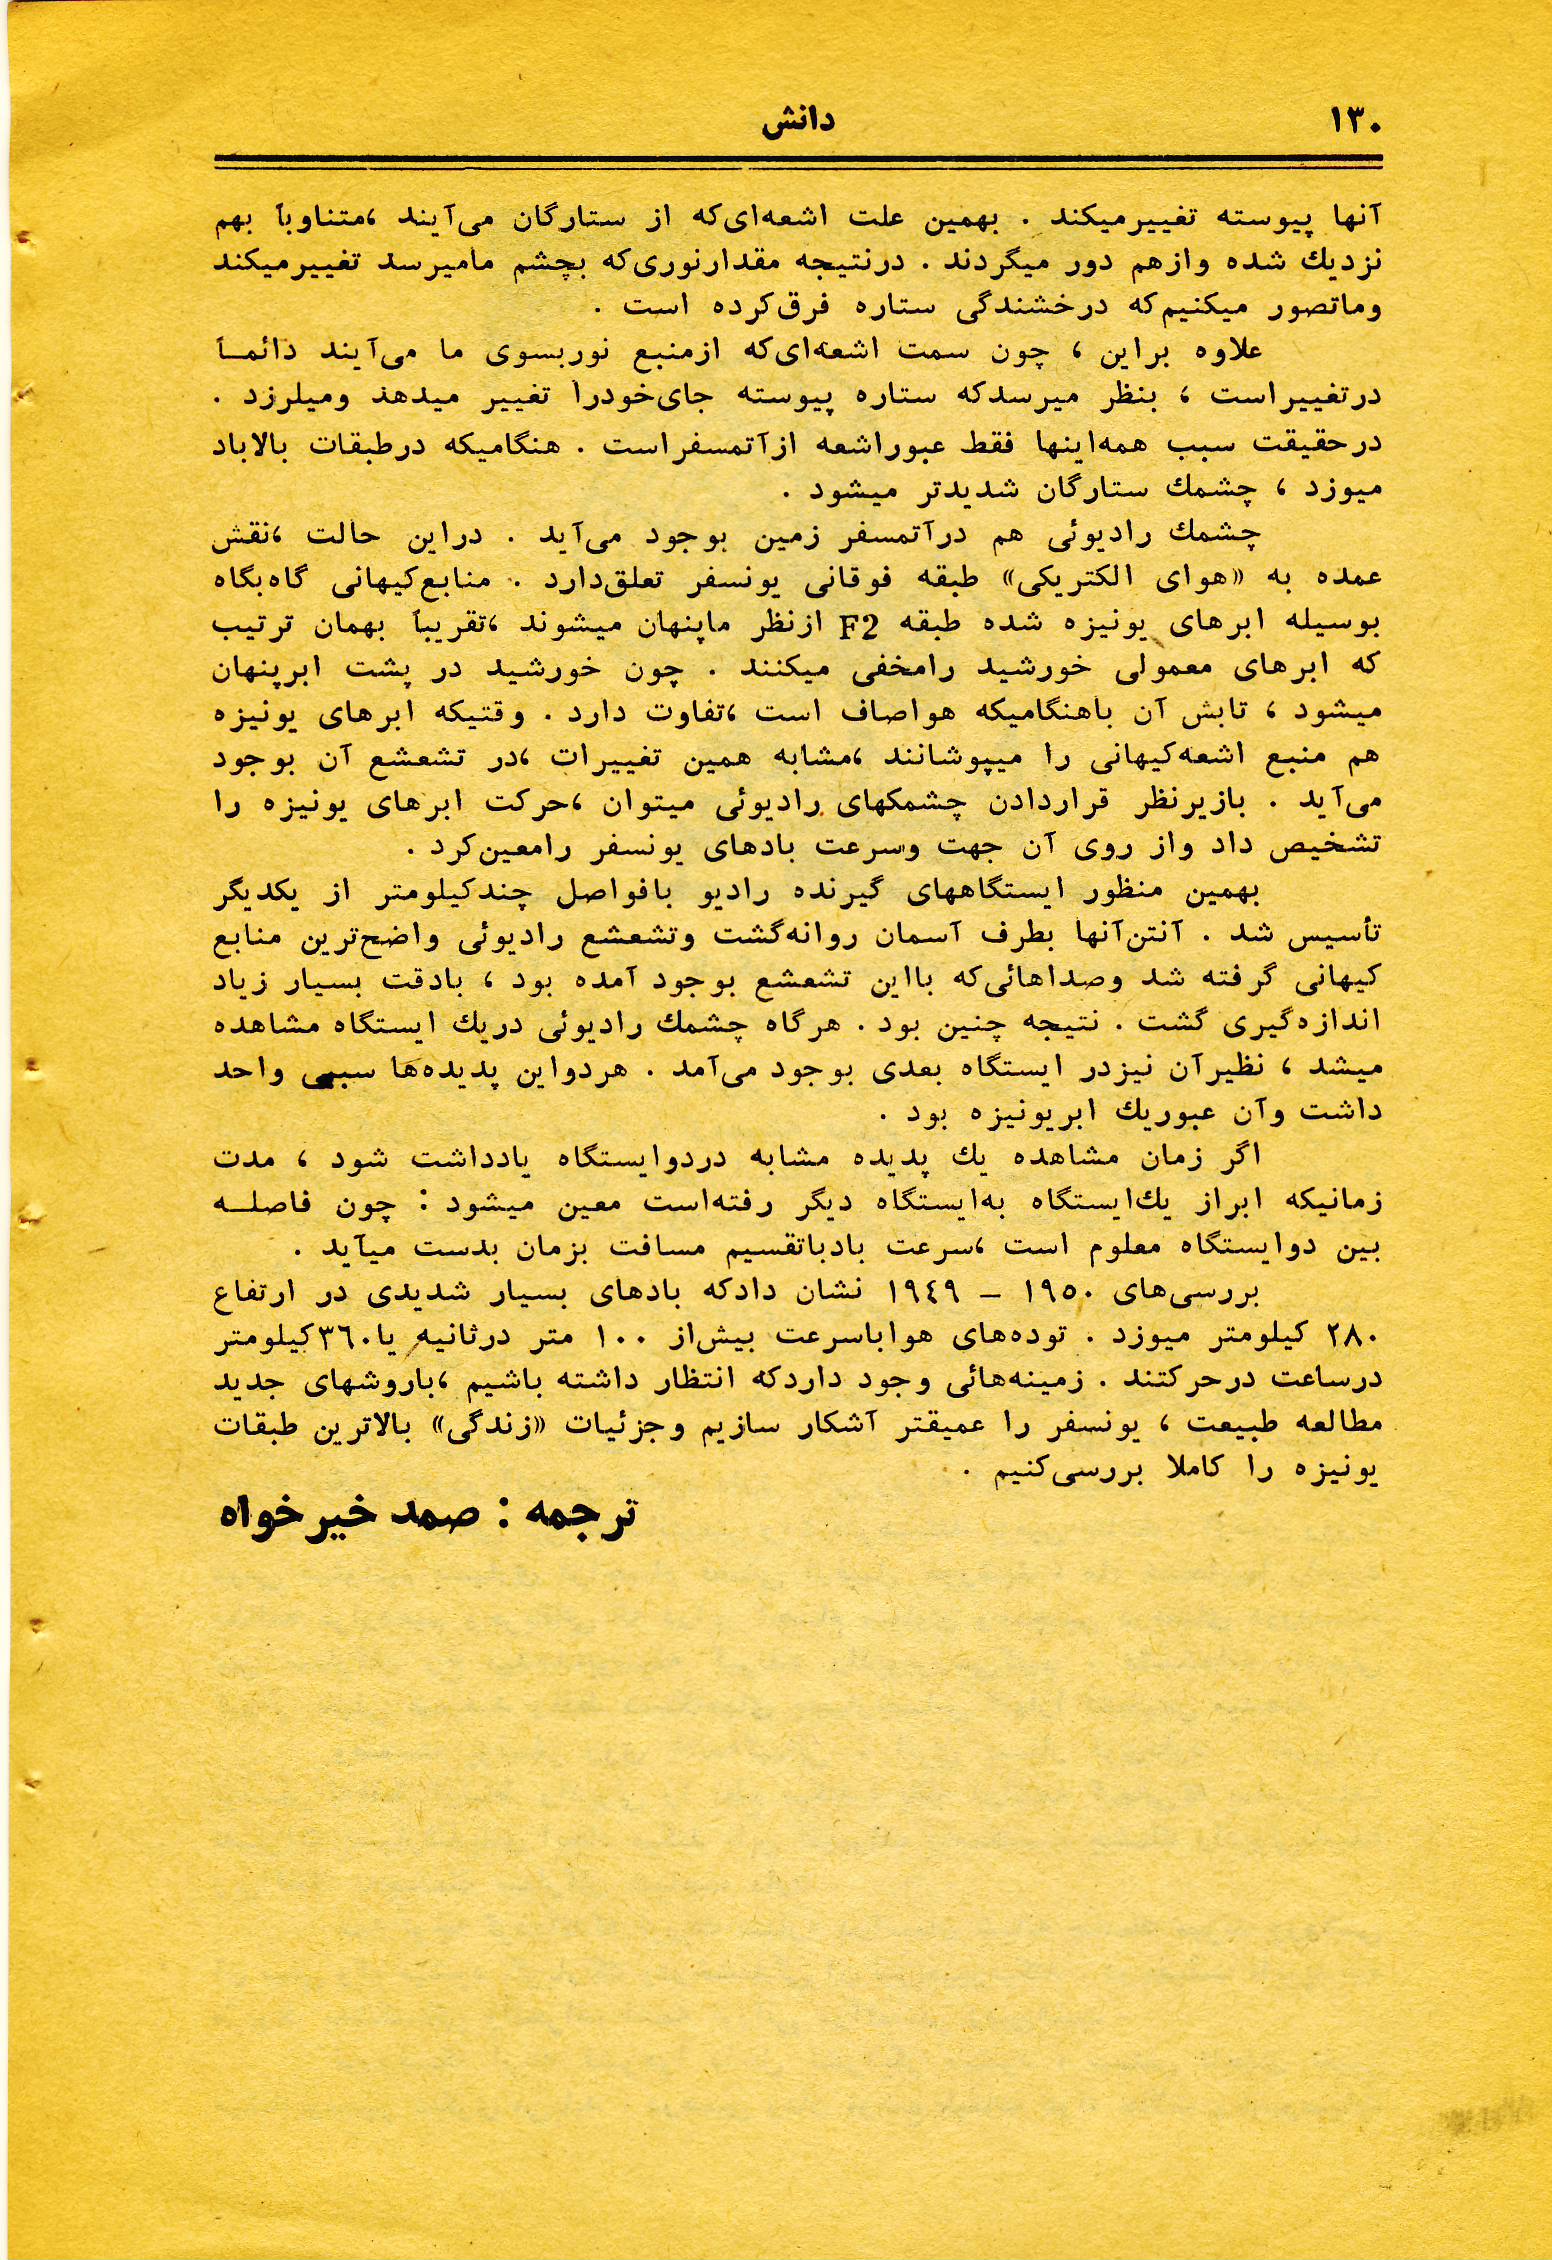 ۱۳۰
دانش
آنها پیوسته تغییرمیکند . بهمین علت اشعه‌ای‌که از ستارگان می‌آیند ،متناوباً بهم
نزدیك شده وازهم دور میگردند . درنتیجه مقدارنوری‌که بچشم مامیرسد تغییرمیکند
وماتصور میکنیم‌که درخشندگی ستاره فرق‌کرده است .
علاوه براین ، چون سمت اشعه‌ای‌که ازمنبع نوربسوی ما می‌آیند دائمـاً
درتغییراست ، بنظر میرسدکه ستاره پیوسته جای‌خودرا تغییر میدهد ومیلرزد .
درحقیقت سبب همه‌اینها فقط عبوراشعه ازآتمسفراست . هنگامیکه درطبقات بالاباد
میوزد ، چشمك ستارگان شدیدتر میشود .
چشمك رادیوئی هم درآتمسفر زمین بوجود می‌آید . دراین حالت ،نقش
عمده به «هوای الکتریکی» طبقه فوقانی یونسفر تعلق‌دارد . منابع‌کیهانی گاه‌بگاه
بوسیله ابرهای یونیزه شده طبقه F2 ازنظر ماپنهان میشوند ،تقریباً بهمان ترتیب
که ابرهای معمولی خورشید رامخفی میکنند . چون خورشید در پشت ابرپنهان
میشود ، تابش آن باهنگامیکه هواصاف است ،تفاوت دارد . وقتیکه ابرهای یونیزه
هم منبع اشعه‌کیهانی را میپوشانند ،مشابه همین تغییرات ،در تشعشع آن بوجود
می‌آید . بازیرنظر قراردادن چشمکهای رادیوئی میتوان ،حرکت ابرهای یونیزه را
تشخیص داد واز روی آن جهت وسرعت بادهای یونسفر رامعین‌کرد .
بهمین منظور ایستگاههای گیرنده رادیو بافواصل چندکیلومتر از یکدیگر
تأسیس شد . آنتن‌آنها بطرف آسمان روانه‌گشت وتشعشع رادیوئی واضح‌ترین منابع
کیهانی گرفته شد وصداهائی‌که بااین تشعشع بوجود آمده بود ، بادقت بسیار زیاد
اندازه‌گیری گشت . نتیجه چنین بود . هرگاه چشمك رادیوئی دریك ایستگاه مشاهده
میشد ، نظیرآن نیزدر ایستگاه بعدی بوجود می‌آمد . هردواین پدیده‌ها سببی واحد
داشت وآن عبوریك ابریونیزه بود .
اگر زمان مشاهده یك پدیده مشابه دردوایستگاه یادداشت شود ، مدت
زمانیکه ابراز یك‌ایستگاه به‌ایستگاه دیگر رفته‌است معین میشود : چون فاصلـه
بین دوایستگاه معلوم است ،سرعت بادباتقسیم مسافت بزمان بدست میآید .
بررسی‌های ۱۹۵۰ - ۱۹٤۹ نشان دادکه بادهای بسیار شدیدی در ارتفاع
۲۸۰ کیلومتر میوزد . توده‌های هواباسرعت بیش‌از ۱۰۰ متر درثانیه یا۳٦۰کیلومتر
درساعت درحرکتند . زمینه‌هائی وجود داردکه انتظار داشته باشیم ،باروشهای جدید
مطالعه طبیعت ، یونسفر را عمیقتر آشکار سازیم وجزئیات «زندگی» بالاترین طبقات
یونیزه را کاملا بررسی‌کنیم .
ترجمه : صمد خیرخواه